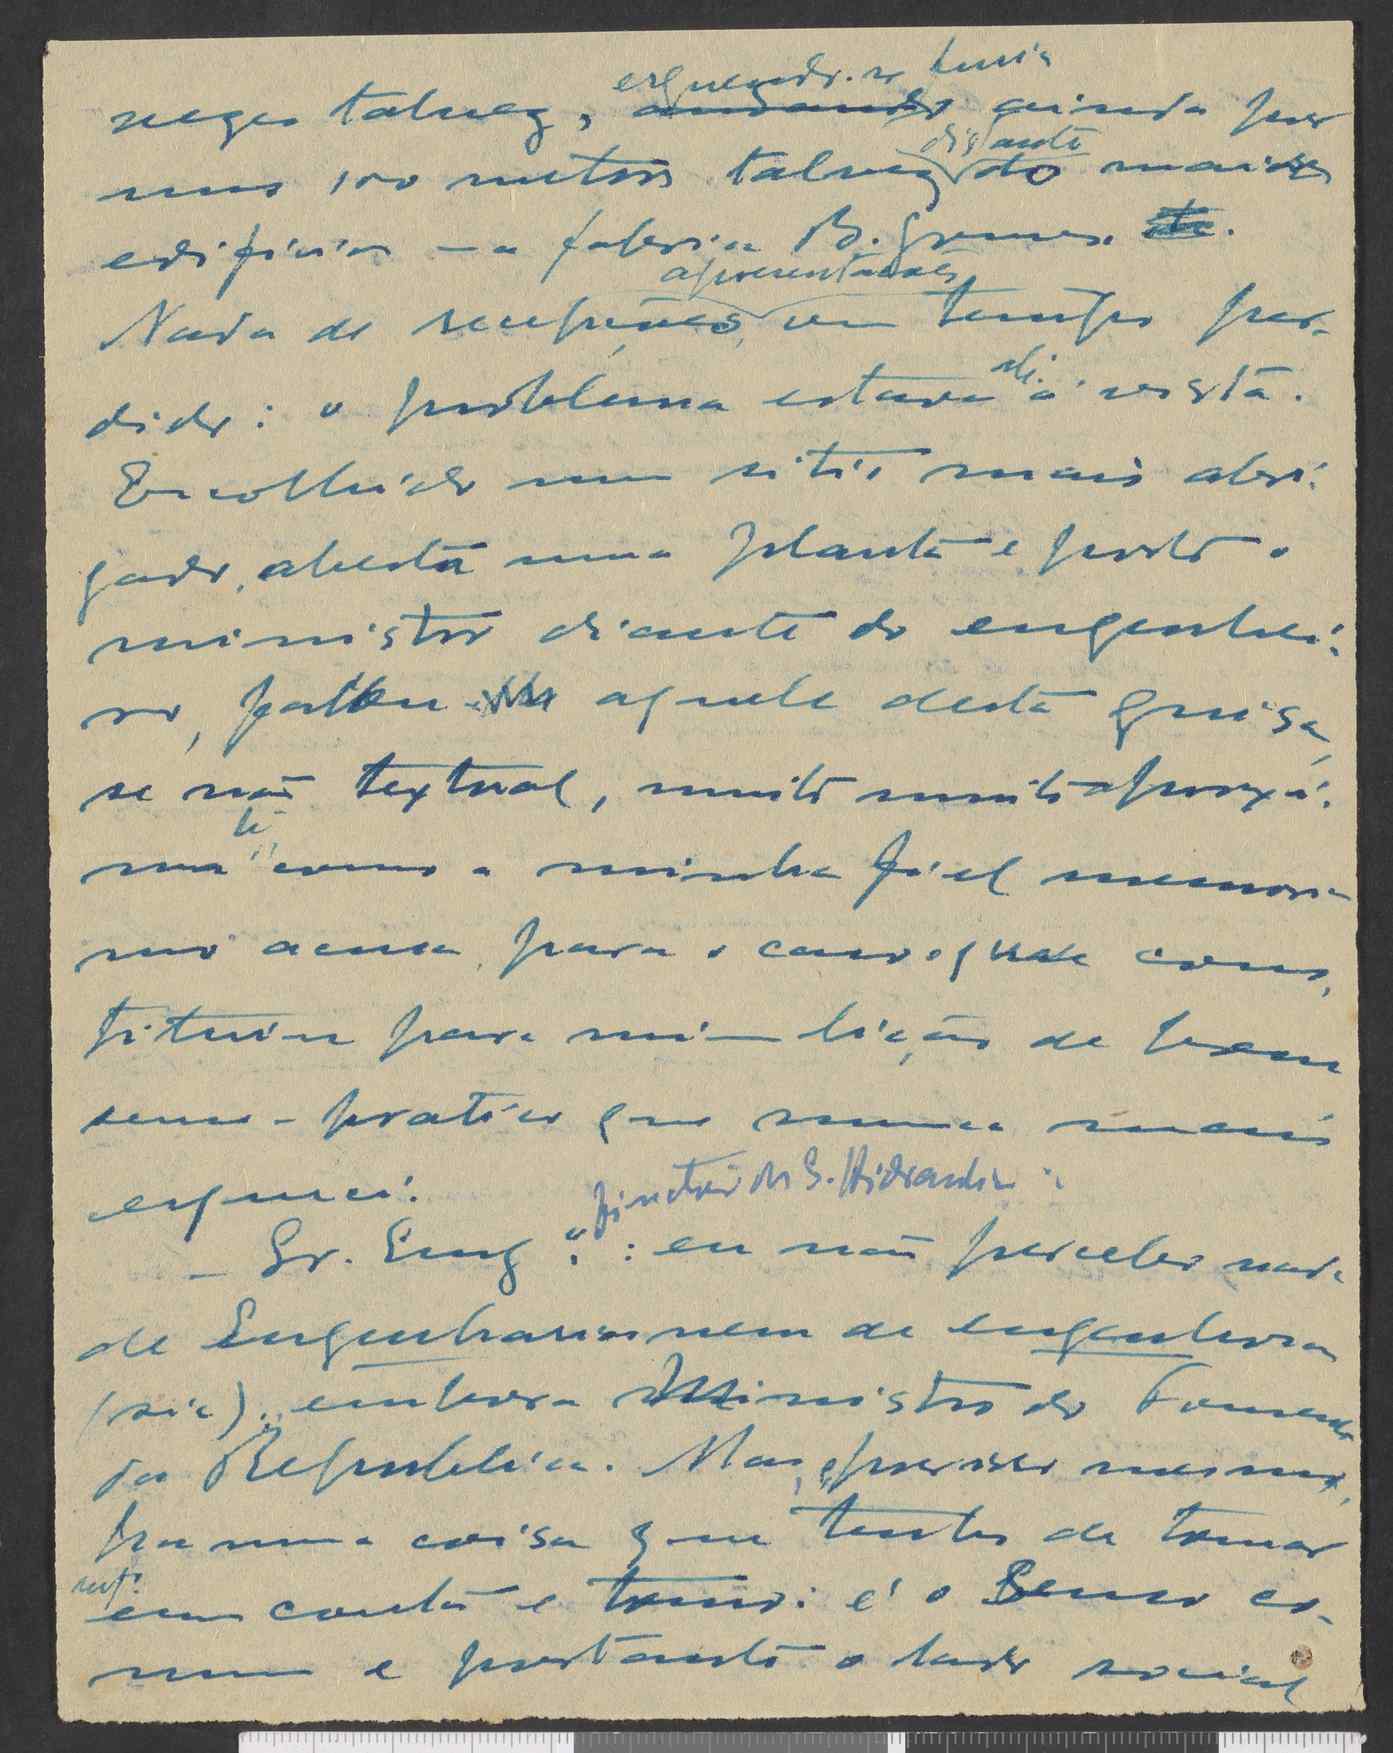 esquerdo.
talvez, andando ainda por
uns 100 metros talvez distante do maior
edificio — a fabrica B. Gomes.
apresentações
Nada de recepções, ou tempo per-
dido: o problema estava ali á vista.
Escolhido um sitio mais abri-
gado, aberta uma planta e posto o
ministro diante do engenhei-
ro, falou aquele desta guisa,
se não textual, muito muito aproxi-
ma como a minha fiel memoria
mo acusa, para o caso que cons-
tituiu para mim lição de bom
senso pratico que nunca mais
esqueci.
director dos S. Hidraulicos
— Sr. Eng.º: eu não percebo nada
de Engenharia nem de engenheiros
(sic), embora Ministro do Fomento
da Republica. Mas, por isso mesmo,
ha uma coisa que tenho de tomar
em conta e tomo: é o Senso co-
mum e portanto o lado social